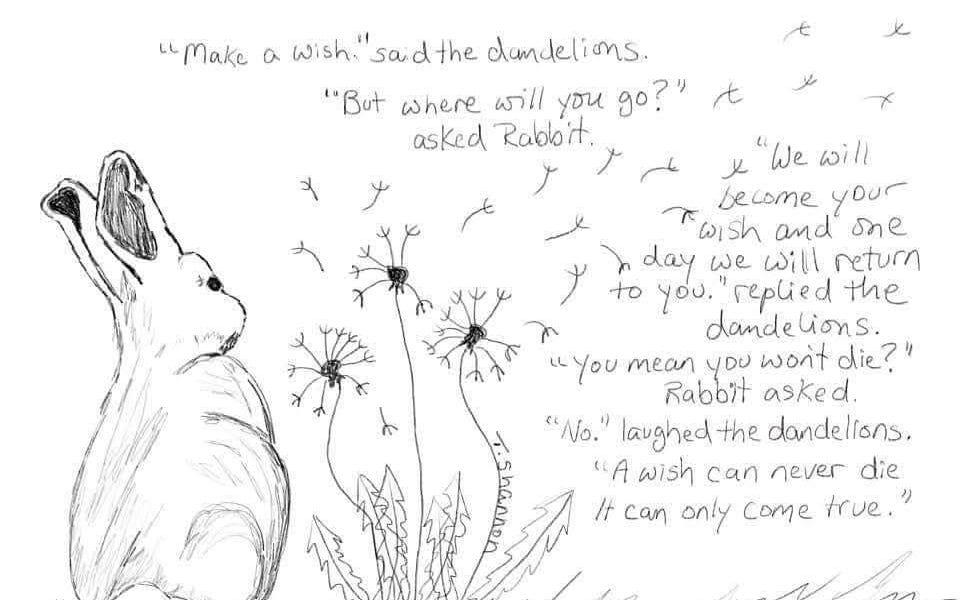 "Make a wish." said the dandelions.
"But where will you go?"
asked Rabbit.
"We will
become your
wish and one
day we will return
to you." replied the
dandelions.
"You mean you won't die?"
Rabbit asked.
"No." laughed the dandelions.
"A wish can never die
It can only come true."
T. Shannon